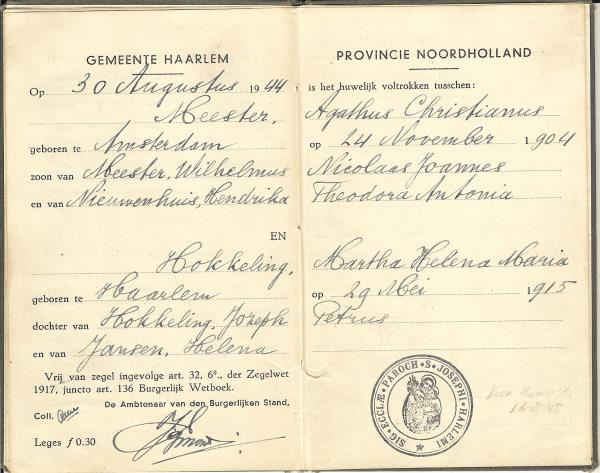 GEMEENTE HAARLEM
Op 30 Augustus 1944
Meester,
geboren te Amsterdam
zoon van Meester, Wilhelmus
en van Nieuwenhuis, Hendrika
EN
Hokkeling,
geboren te Haarlem
dochter van Hokkeling, Jozeph
en van Jansen, Helena
Vrij van zegel ingevolge art. 32, 6º., der Zegelwet
1917, juncto art. 136 Burgerlijk Wetboek.
De Ambtenaar van den Burgerlijken Stand,
Coll.
Leges f 0.30
PROVINCIE NOORDHOLLAND
is het huwelijk voltrokken tusschen:
Agathus Christianus
op 24 November 1904
Nicolaas Joannes
Theodora Antonia
Martha Helena Maria
op 29 Mei 1915
Petrus
SIG. ECCLÆ PAROCH. S. JOSEPHI HARLEMI
16-8-45